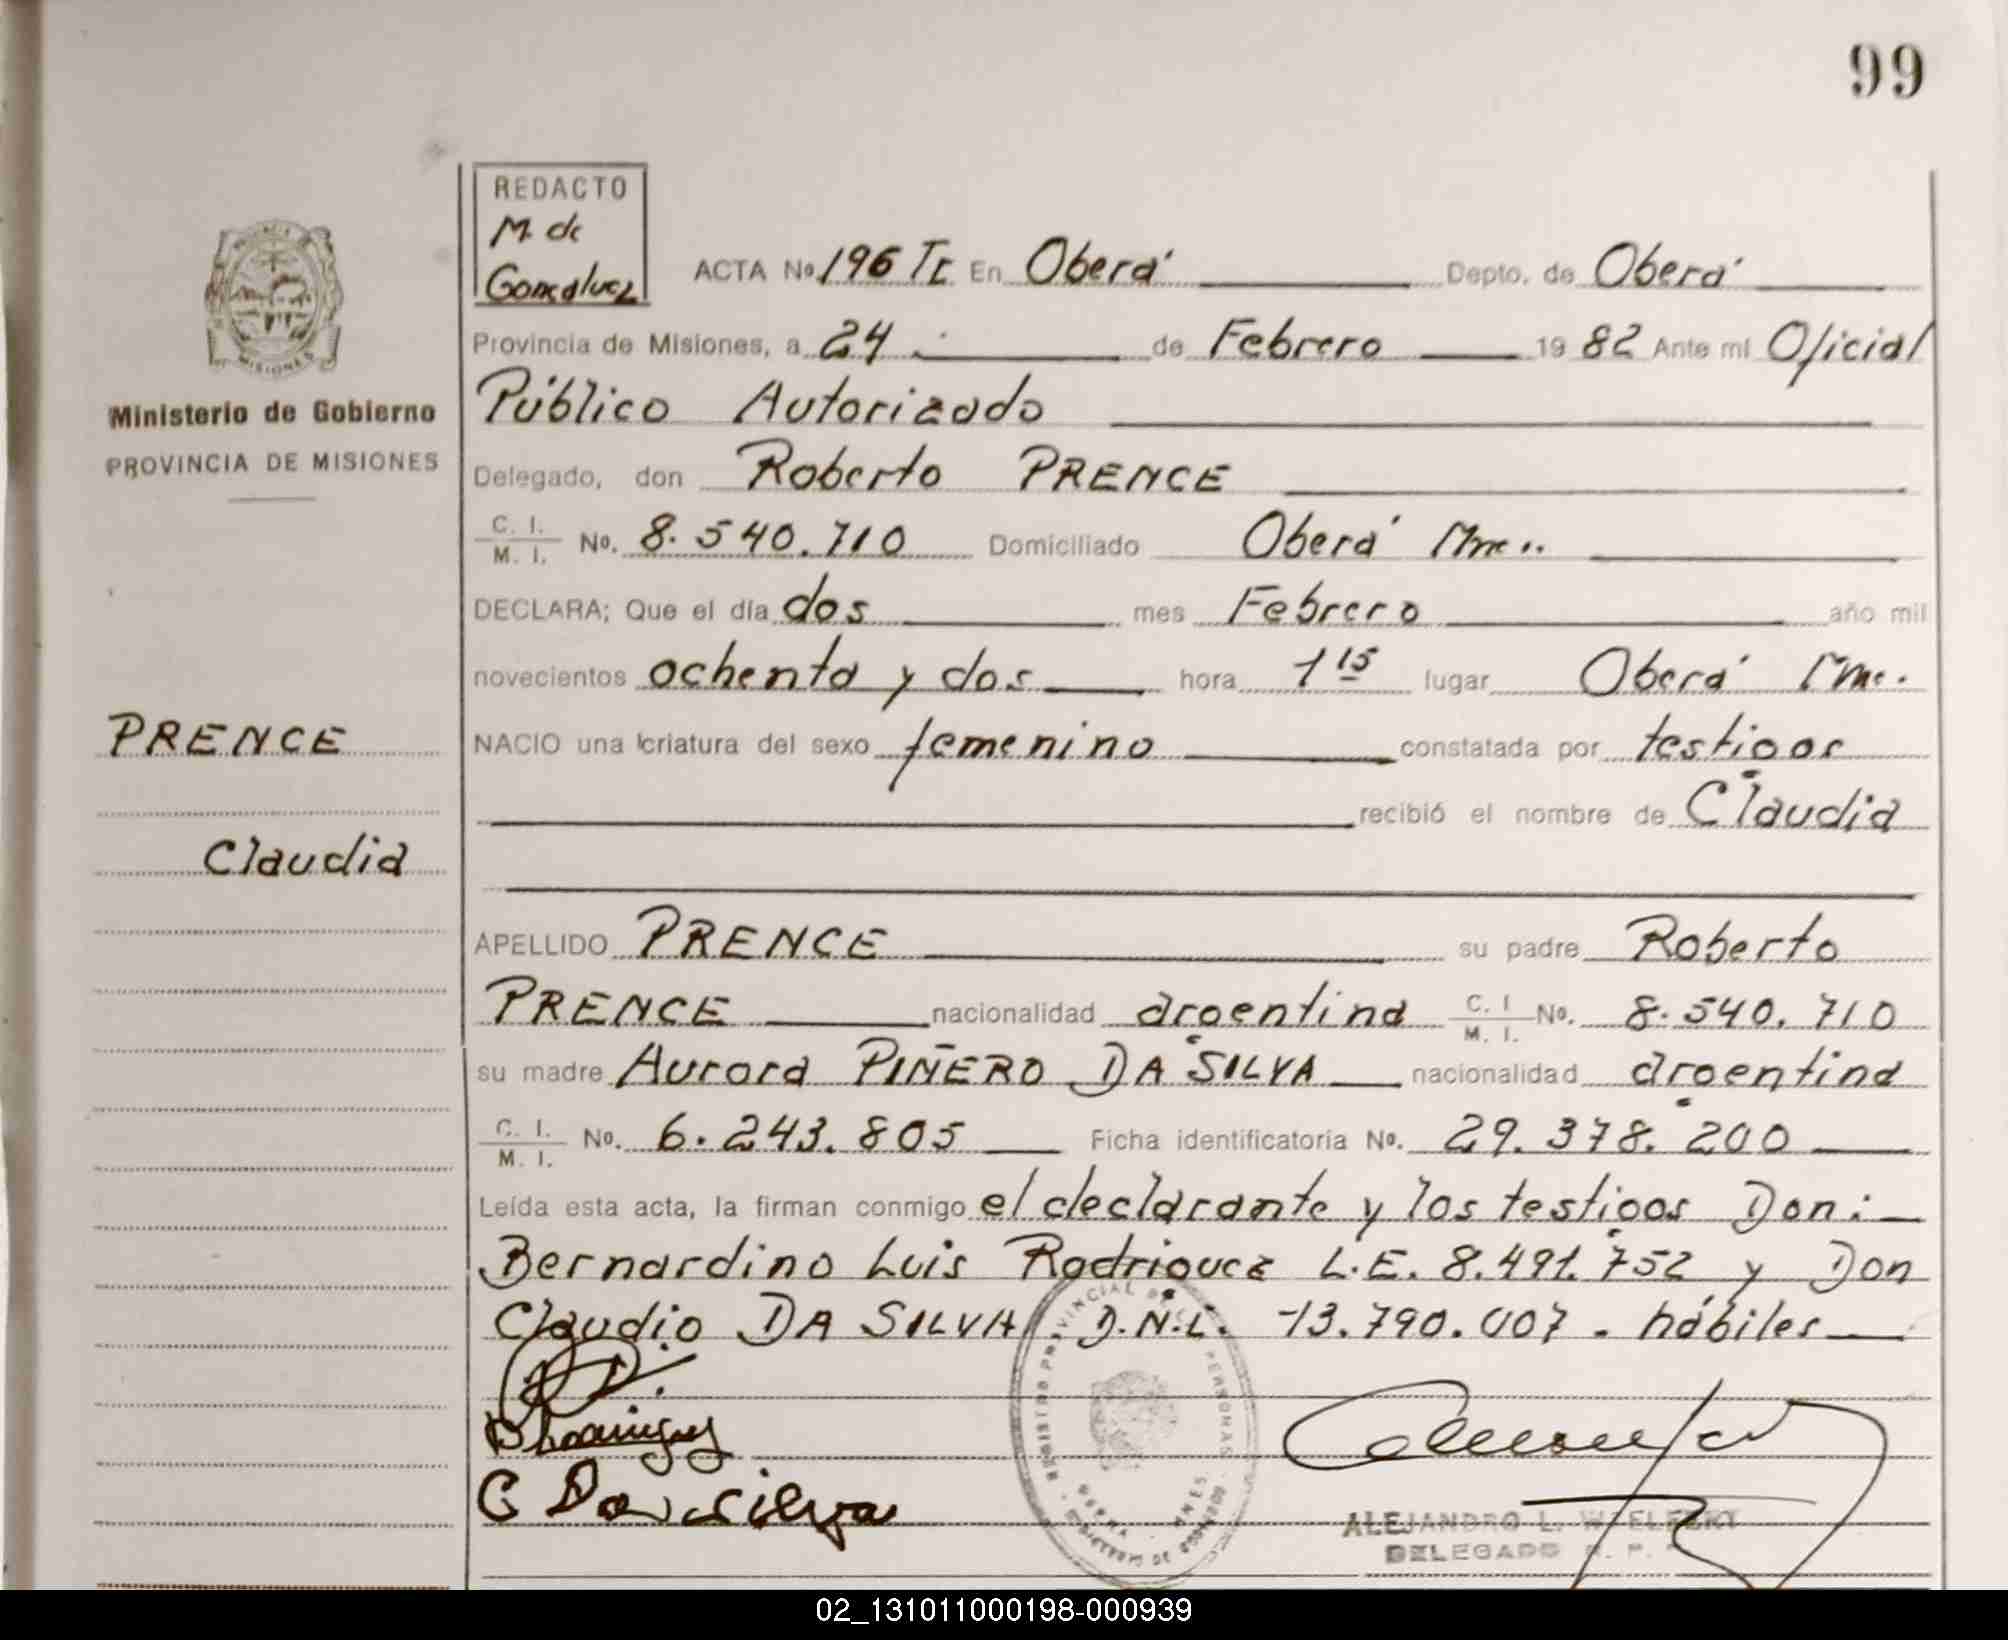 99
REDACTO
M. de
Goncalvez
ACTA Nº 196 TC En Oberá Depto. de Oberá
Provincia de Misiones, a 24 de Febrero 1982 Ante mi Oficial
Público Autorizado
Ministerio de Gobierno
PROVINCIA DE MISIONES
Delegado, don Roberto PRENCE
C. I. / M. I. Nº. 8.540.710 Domiciliado Oberá Mnes.
DECLARA; Que el día dos mes Febrero año mil
novecientos ochenta y dos hora 1 15 lugar Oberá Mnes.
PRENCE
NACIO una criatura del sexo femenino constatada por testigos
recibió el nombre de Claudia
Claudia
APELLIDO PRENCE su padre Roberto
PRENCE nacionalidad argentina C. I / M. I. Nº. 8.540.710
su madre Aurora PIÑERO DA SILVA nacionalidad argentina
C. I. / M. I. Nº. 6.243.805 Ficha identificatoria Nº. 29.378.200
Leída esta acta, la firman conmigo el declarante y los testigos Don:
Bernardino Luis Rodriguez L.E. 8.491.752 y Don
Claudio DA SILVA D.N.I. 13.790.007. hábiles
C Da Silva
ALEJANDRO L.
DELEGADO R. P.
02_131011000198-000939